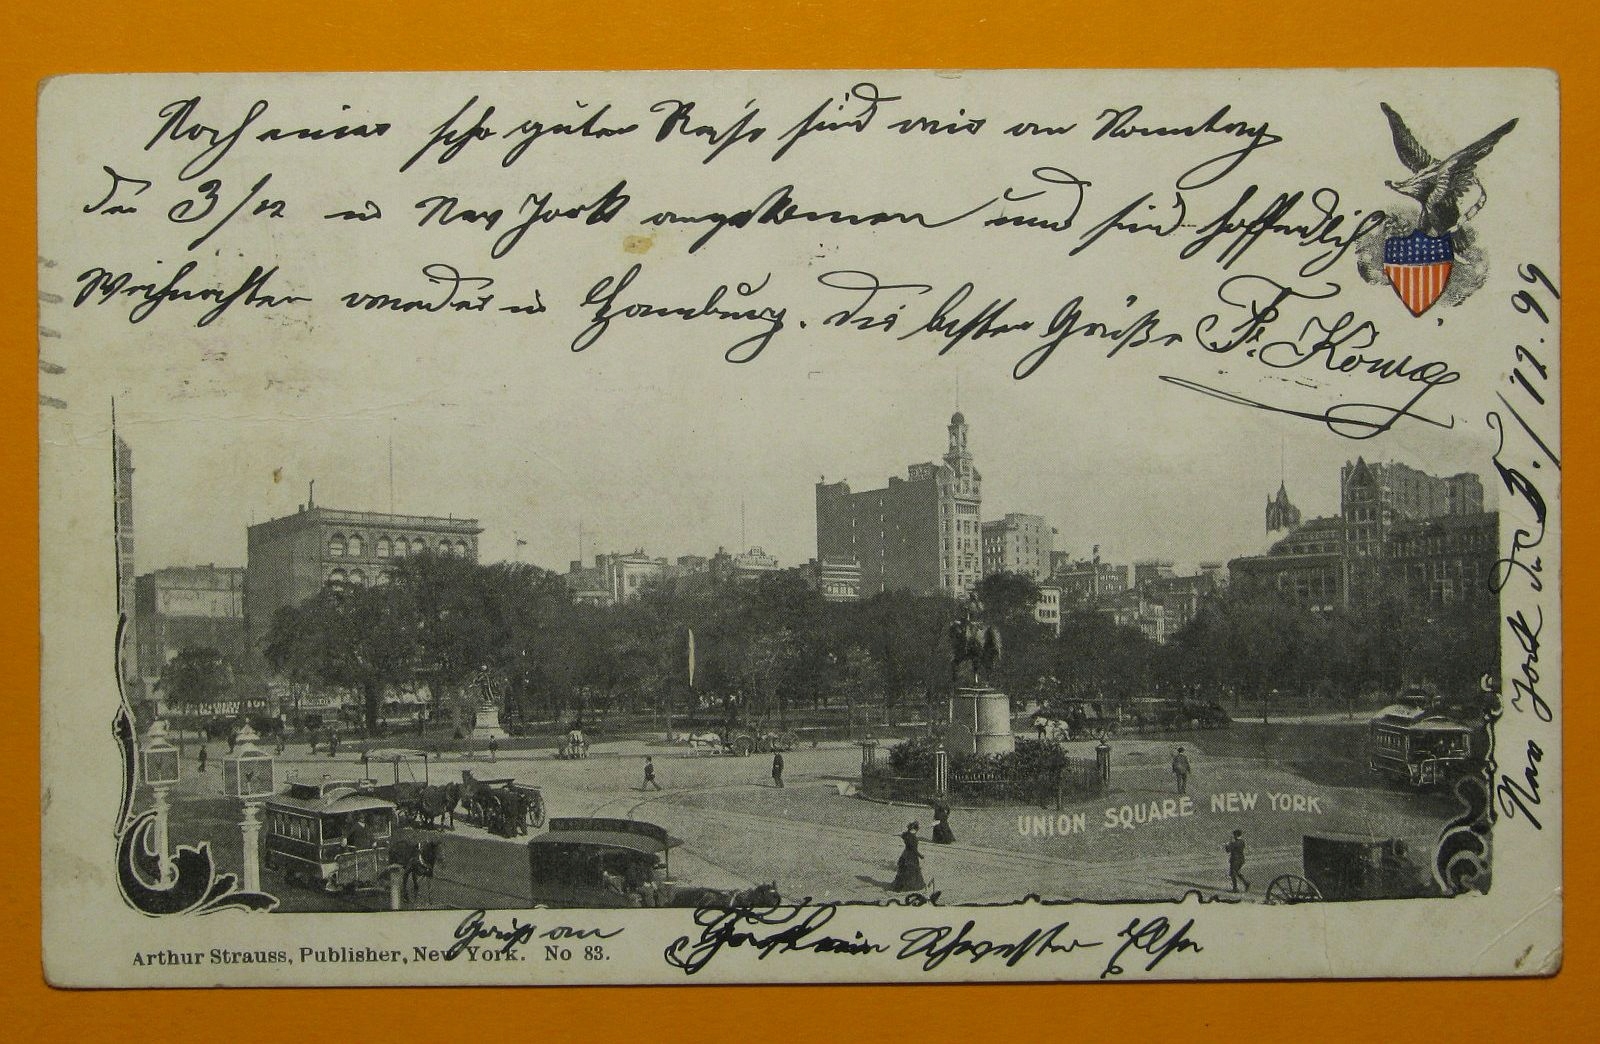 Nach einer sehr guten Reise sind wir am Sonntag
den 3/12 in New York angekommen und sind hoffendlich
Weihnachten wieder in Hamburg. Die besten Grüße Fr. König
New York den 5./12.99
UNION SQUARE NEW YORK
Gruß an Schwester Else
Arthur Strauss, Publisher, New York. No 83.